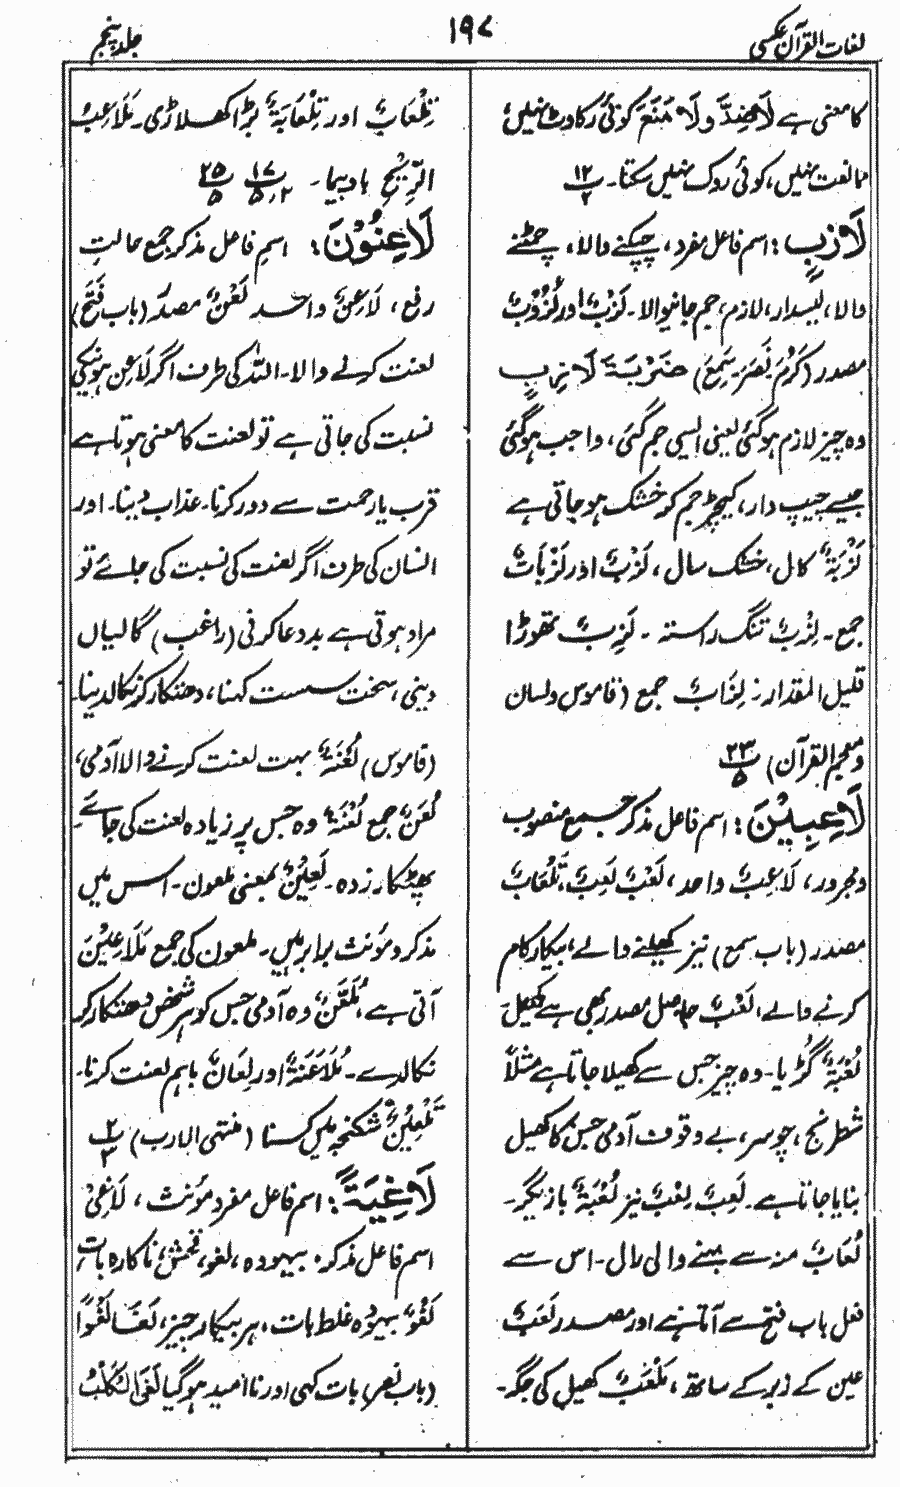 لغات القرآن عکسی
۱۹۷
جلد پنجم
کا معنی ہے لَا ضِدَّ و لَا مَنَعَ کوئی رکاوٹ نہیں،
ممانعت نہیں، کوئی روک نہیں سکتا۔ ۱۲/۲
لَازِبٍ: اسم فاعل مفرد، چپکنے والا، چمٹنے
والا، لیسدار، لازم، جم جانیوالا۔ لَزْبٌ اور لُزُوْبٌ
مصدر (کَرُمَ نَصَرَ سَمِعَ) ضَرْبَۃَ لَازِبٍ
وہ چیز لازم ہوگئی یعنی ایسی جم گئی، واجب ہوگئی
جیسے چیپ دار، کیچڑ جم کر خشک ہو جاتی ہے
لَزْبَۃٌ کال، خشک سال، لَزْبٌ اور لَزْبَاتٌ
جمع۔ لِزْبٌ تنگ راستہ ۔ لَزِبٌ تھوڑا
قلیل المقدار۔ لِزَابٌ جمع (قاموس و لسان
و معجم القرآن) ۲۳/۵
لَاعِبِیْنَ: اسم فاعل مذکر جمع منصوب
و مجرور، لَاعِبٌ واحد، لَعْبٌ لَعِبٌ، تَلْعَابٌ
مصدر (باب سمع) نیز کھیلنے والے، بیکار کام
کرنے والے، لَعْبٌ حاصل مصدر بھی ہے کھیل
لُعْبَۃٌ گڑیا۔ وہ چیز جس سے کھیلا جاتا ہے مثلًا
شطرنج، چوسر، بے وقوف آدمی جس کا کھیل
بنایا جاتا ہے۔ لَعِبٌ لِعْبٌ نیز لُعْبَۃٌ بازیگر۔
لُعَابٌ منہ سے بہنے والی رال۔ اس سے
فعل باب فتح سے آتا ہے اور مصدر لَعَبٌ
عین کے زبر کے ساتھ، مَلْعَبٌ کھیل کی جگہ۔
تِلْعَابٌ اور تِلْعَابَۃٌ بڑا کھلاڑی۔ مَلَاعِبُ
الرِّیْحِ بادپیما۔ ۱۷/۵،۲ ۲۵/۵
لَاعِنُوْنَ: اسم فاعل مذکر جمع حالت
رفع، لَاعِنٌ واحد لَعْنٌ مصدر (باب فَتَحَ)
لعنت کرنے والا۔ اللہ کی طرف اگر لاعن ہونیکی
نسبت کی جاتی ہے تو لعنت کا معنی ہوتا ہے
قرب یا رحمت سے دور کرنا۔ عذاب دینا۔ اور
انسان کی طرف اگر لعنت کی نسبت کی جائے تو
مراد ہوتی ہے بددعا کرنی (راغب) گالیاں
دینی، سخت سست کہنا، دھتکار کر نکال دینا۔
(قاموس) لُعَنَۃٌ بہت لعنت کرنے والا آدمی،
لُعَنٌ جمع لُعْنَۃٌ وہ جس پر زیادہ لعنت کی جائے۔
پھٹکار زدہ۔ لَعِیْنٌ بمعنی ملعون۔ اس میں
مذکر و مؤنث برابر ہیں۔ ملعون کی جمع مَلَاعِیْنَ
آتی ہے، مُلَعَّنٌ وہ آدمی جس کو ہر شخص دھتکار کر
نکالدے۔ مُلَاعَنَۃٌ اور لِعَانٌ باہم لعنت کرنا۔
تَلْعِیْنٌ شکنجہ میں کسنا (منتہی الارب) ۲/۳
لَاغِیَۃً: اسم فاعل مفرد مؤنث، لَاغِیْ
اسم فاعل مذکر۔ بیہودہ، لغو، فحش، ناکارہ بات
لَغْوٌ بیہودہ غلط بات، ہر بیکار چیز، لَغَا لَغْوًا
(باب نصر) بات کہی اور ناامید ہوگیا لَغَا الْکَلْبُ